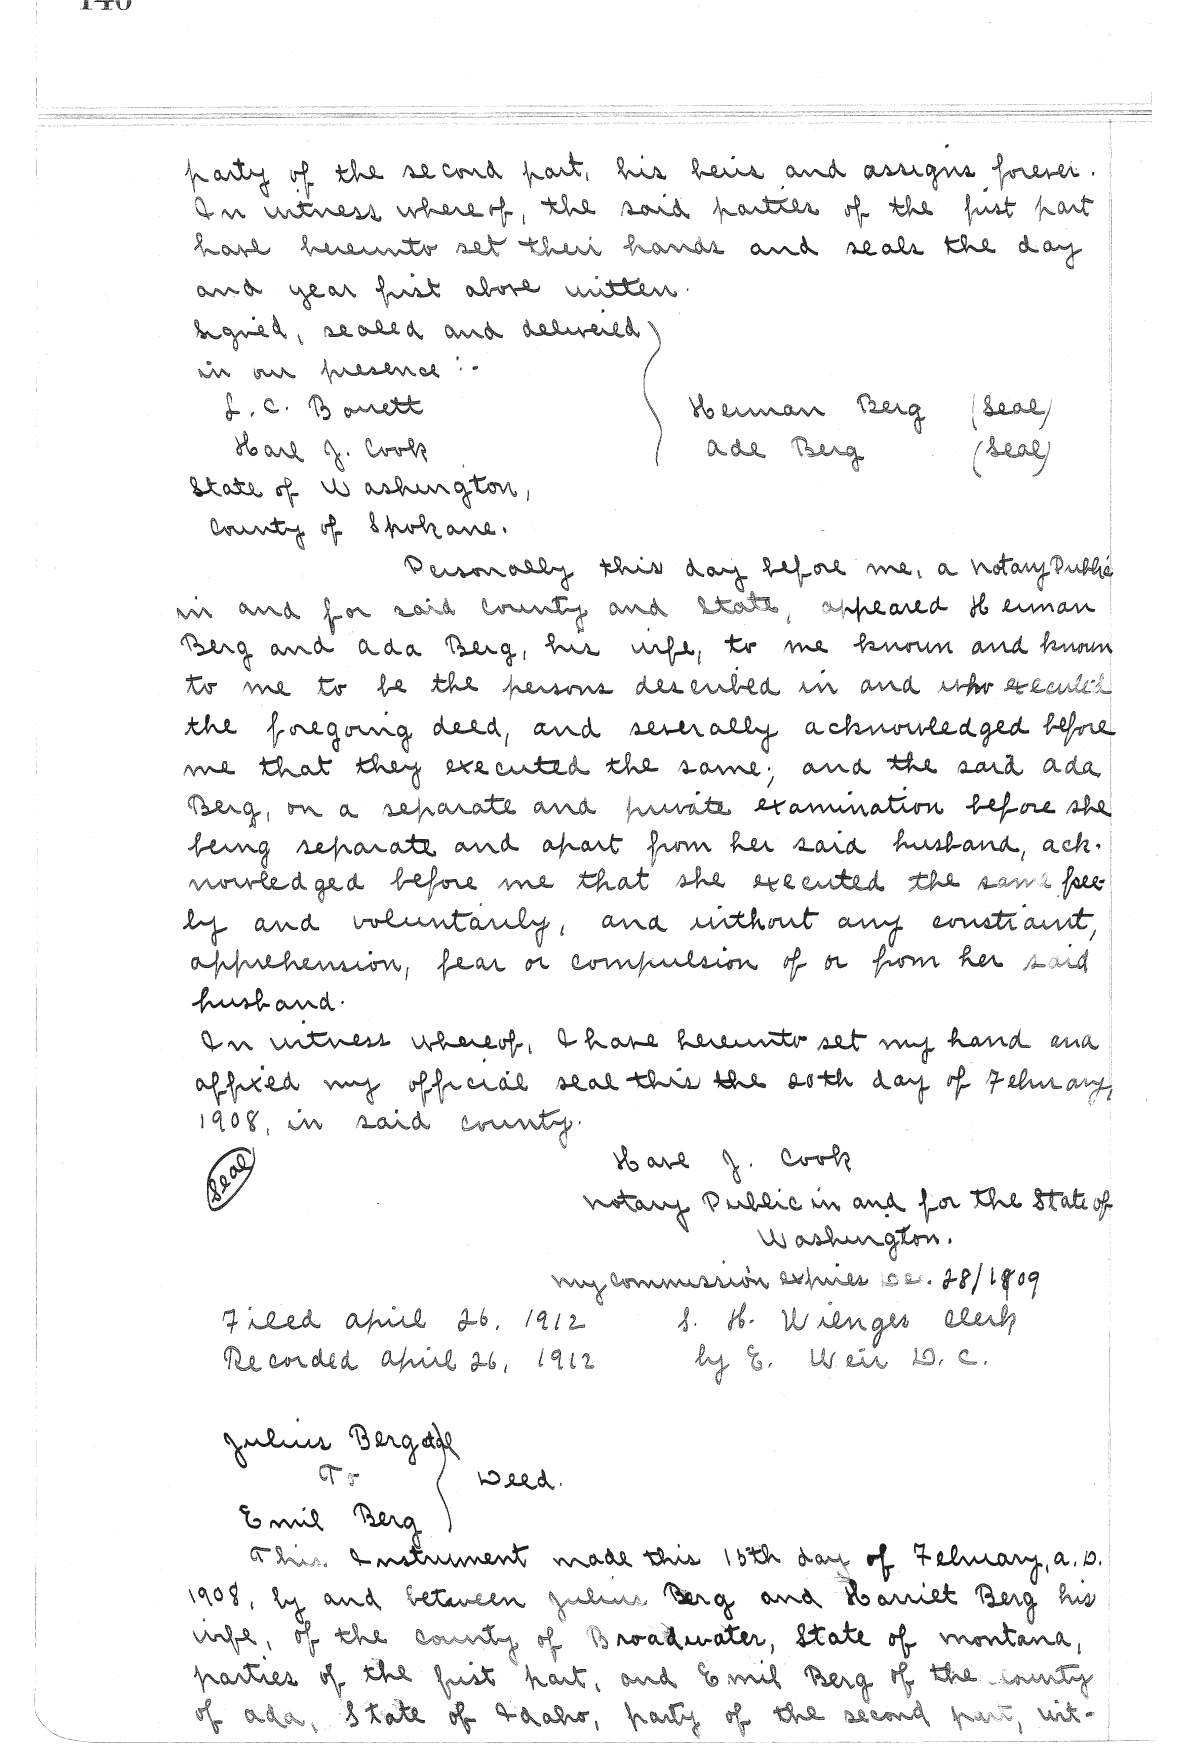 140
party of the second part, his heirs and assigns forever.
In witness whereof, the said parties of the first part
have hereunto set their hands and seals the day
and year first above written.
Signed, sealed and delivered
in our presence :-
L. C. Barrett
Harl J. Cook
Herman Berg (Seal)
Ade Berg (Seal)
State of Washington,
County of Spokane.
Personally this day before me, a Notary Public
in and for said County and State, appeared Herman
Berg and Ada Berg, his wife, to me known and known
to me to be the persons described in and who executed
the foregoing deed, and severally acknowledged before
me that they executed the same; and the said Ada
Berg, on a separate and private examination before she
being separate and apart from her said husband, ack-
nowledged before me that she executed the same free-
ly and voluntarily, and without any constraint,
apprehension, fear or compulsion of or from her said
husband.
In witness whereof, I have hereunto set my hand and
affixed my official seal this the 20th day of February,
1908, in said county.
Seal
Harl J. Cook
Notary Public in and for the State of
Washington.
My commission expires Dec. 28/1909
Filed April 26, 1912 S. H. Wienges Clerk
Recorded April 26, 1912 by E. Weir D. C.
Julius Berg et al
To
Deed.
Emil Berg
This Instrument made this 15th day of February, A. D.
1908, by and between Julius Berg and Harriet Berg his
wife, of the County of Broadwater, State of Montana,
parties of the first part, and Emil Berg of the County
of Ada, State of Idaho, party of the second part, wit-